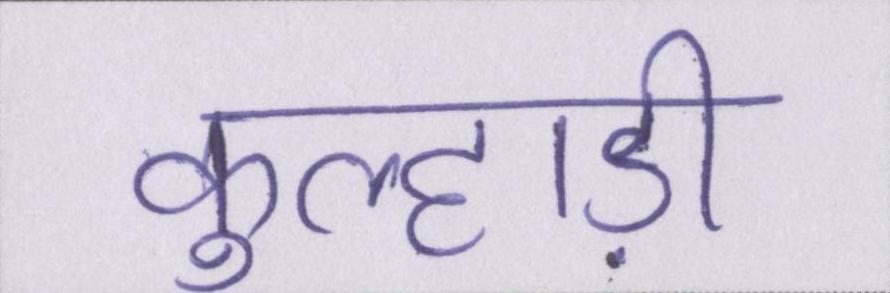 कुल्हाड़ी